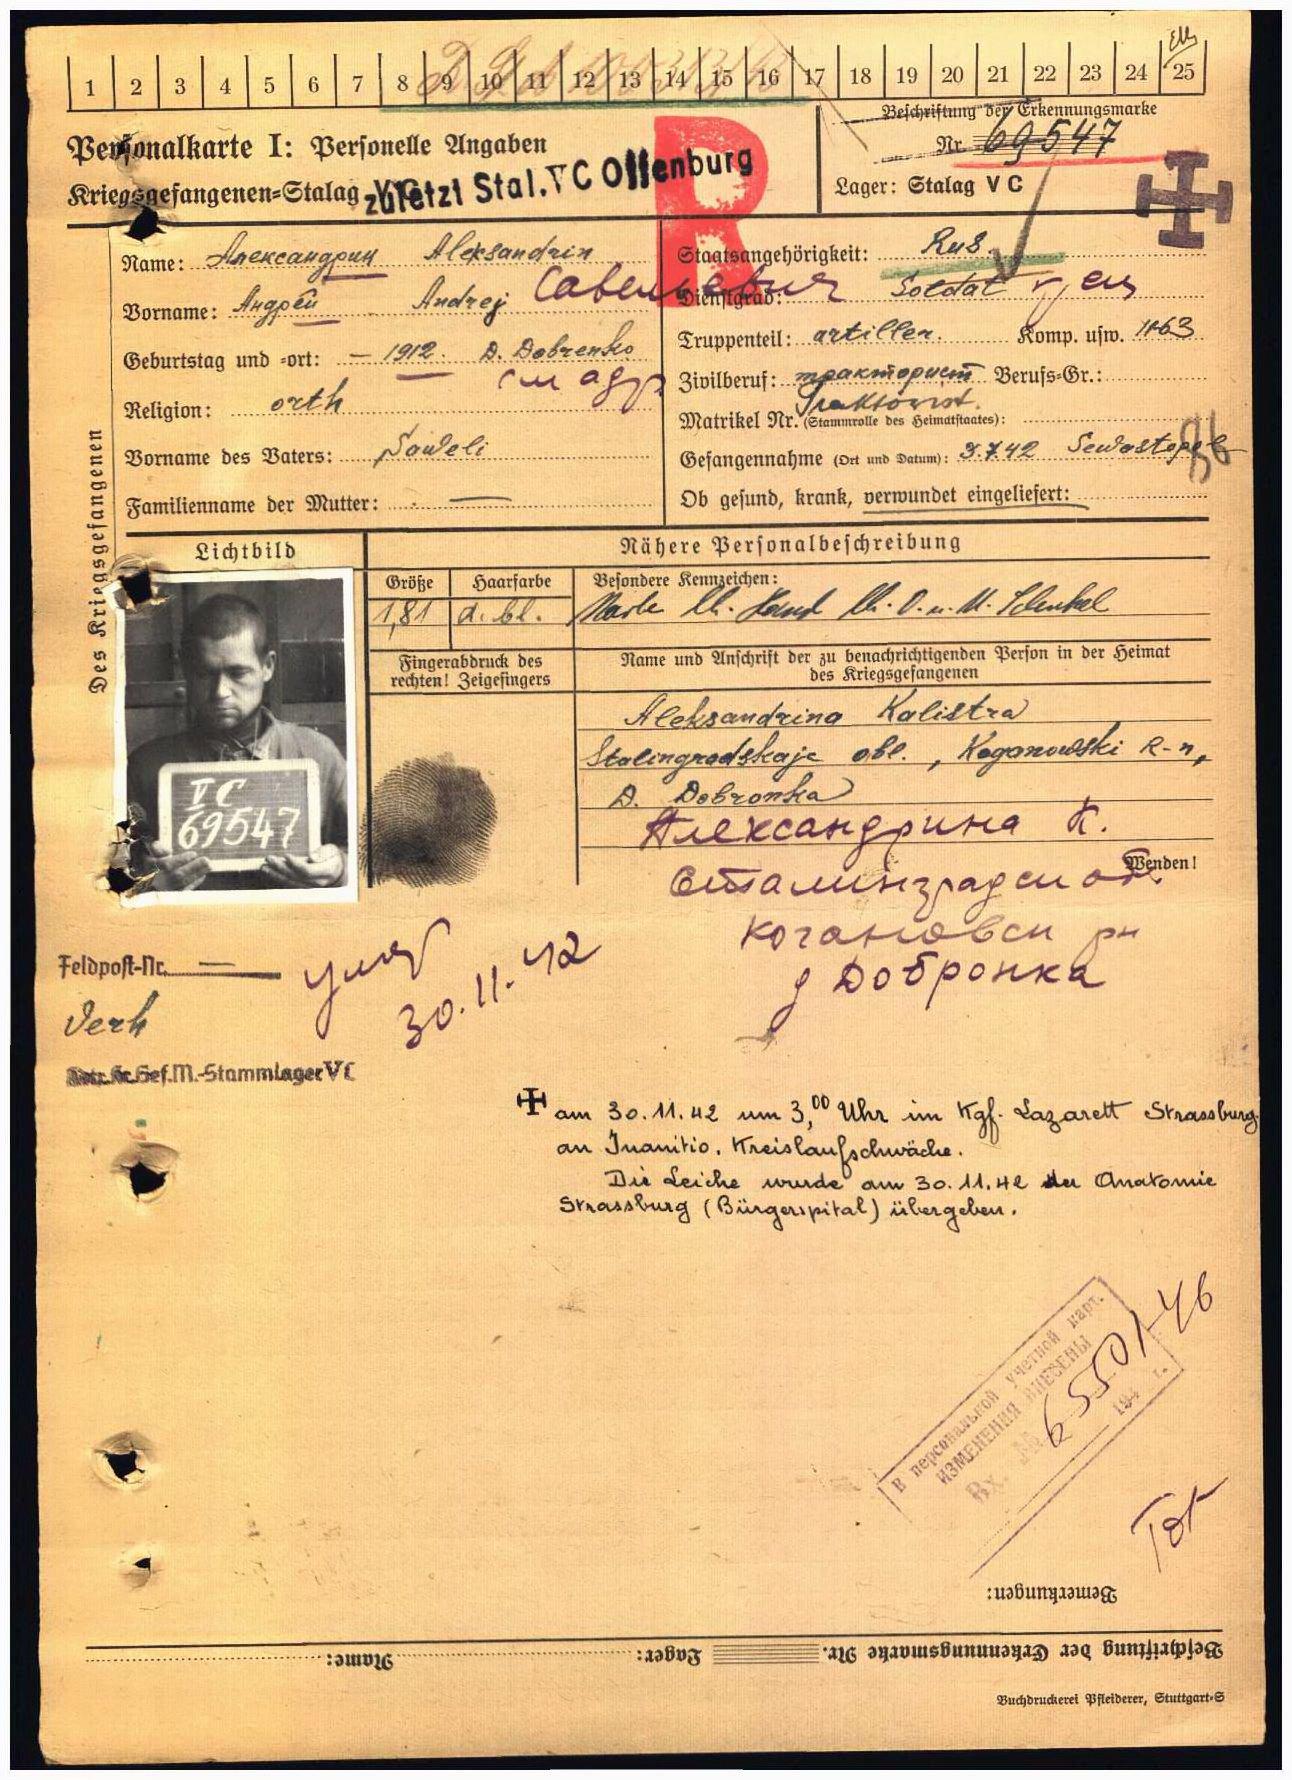 1 2 3 4 5 6 7 8 9 10 11 12 13 14 15 16 17 18 19 20 21 22 23 24 25
Beschriftung der Erkennungsmarke
Nr. 69547
Lager: Stalag V C
Personalkarte I: Personelle Angaben
Kriegsgefangenen-Stalag
zuletzt Stal. V C Offenburg
R
Des Kriegsgefangenen
Name: Александрин Aleksandrin
Vorname: Андрей Andrej Савельевич
Geburtstag und -ort: – 1912. D. Dobrenko
см адр
Religion: orth
Vorname des Vaters: Saweli
Familienname der Mutter: —
Staatsangehörigkeit: Rus.
Dienstgrad: Soldat
Truppenteil: artiller. Komp. usw. 1163
Zivilberuf: тракторист Berufs-Gr.:
Traktorist.
Matrikel Nr. (Stammrolle des Heimatstaates):
Gefangennahme (Ort und Datum): 3.7.42 Sewastopol
Ob gesund, krank, verwundet eingeliefert:
Lichtbild
Nähere Personalbeschreibung
Größe Haarfarbe Besondere Kennzeichen:
1,81 d. bl. Narbe li. Hand li. O. u. U. Schenkel
Fingerabdruck des
rechten! Zeigefingers
Name und Anschrift der zu benachrichtigenden Person in der Heimat
des Kriegsgefangenen
Aleksandrina Kalistra
Stalingradskaje obl., Koganowski R-n,
D. Dobronka
Александрина К.
Wenden!
Сталинградск об.
Когановск рн
д Добронка
V C
69547
Feldpost-Nr. —
умер
30.11.42
Verh
Gef.M.-Stammlager V C
am 30.11.42 um 3,00 Uhr im Kgf. Lazarett Strassburg
an Inanitio, Kreislaufschwäche.
Die Leiche wurde am 30.11.42 der Anatomie
Strassburg (Bürgerspital) übergeben.
В персональной учетной карт.
ИЗМЕНЕНИЯ ВНЕСЕНЫ
Вх. № 65501-46
194 г.
Tot
Bemerkungen:
Beschriftung der Erkennungsmarke Nr. Lager: Name:
Buchdruckerei Pfleiderer, Stuttgart-S